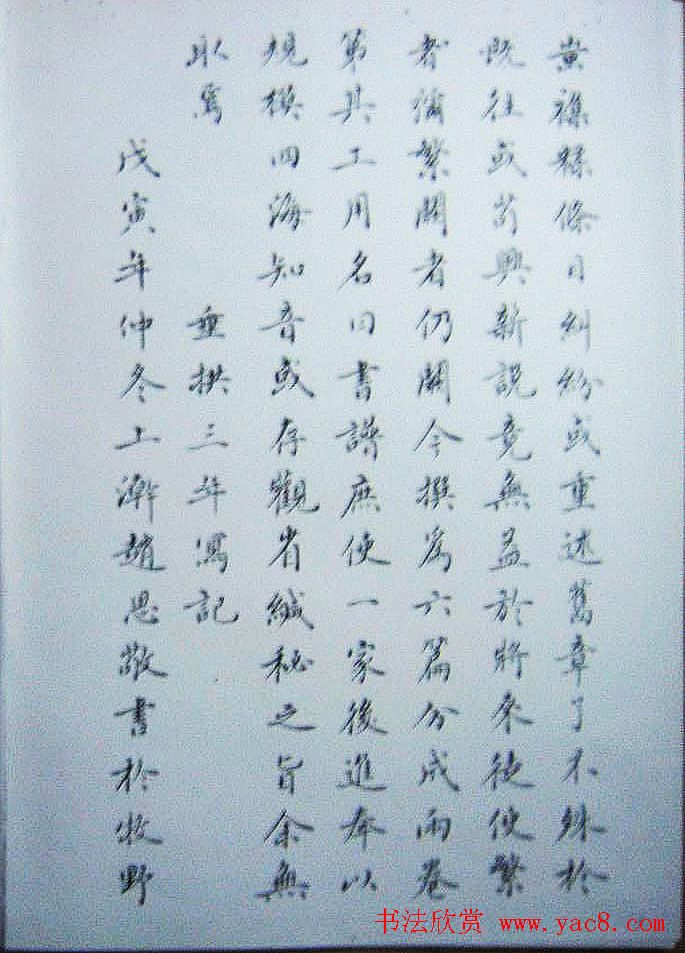 黄襍糅條目糾紛或重述舊章了不殊於
既往或苟興新說竟無益於將來徒使繁
者彌繁闕者仍闕今撰為六篇分成兩卷
第其工用名曰書譜庶使一家後進奉以
規模四海知音或存觀省緘秘之旨余無
取焉
垂拱三年寫記
戊寅年仲冬上澣趙思敬書於牧野
书法欣赏 www.yac8.com